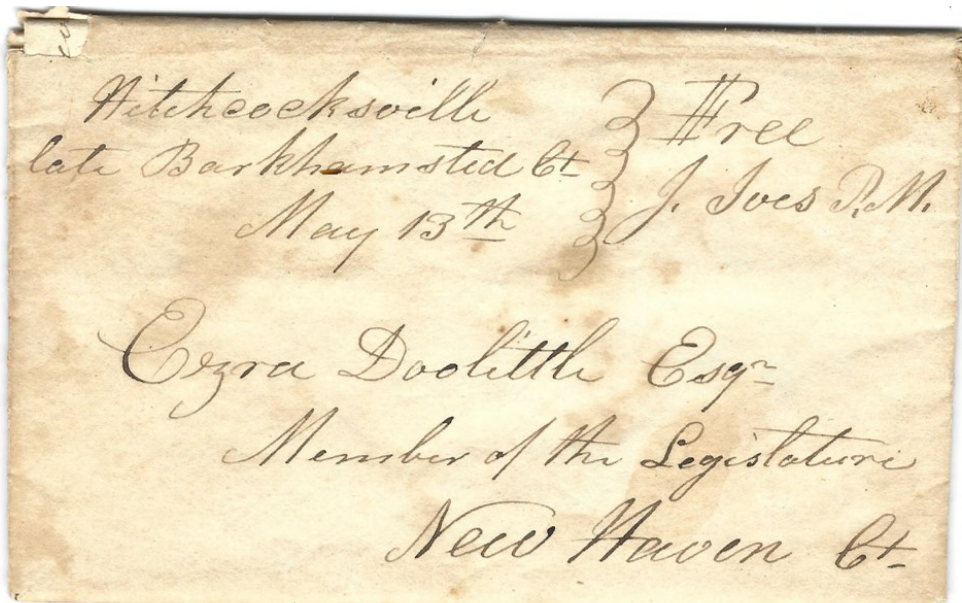 Hitchcocksville
late Barkhamsted Ct
May 13th
Free
J. Ives P.M.
Ezra Doolittle Esqr
Member of the Legislature
New Haven Ct